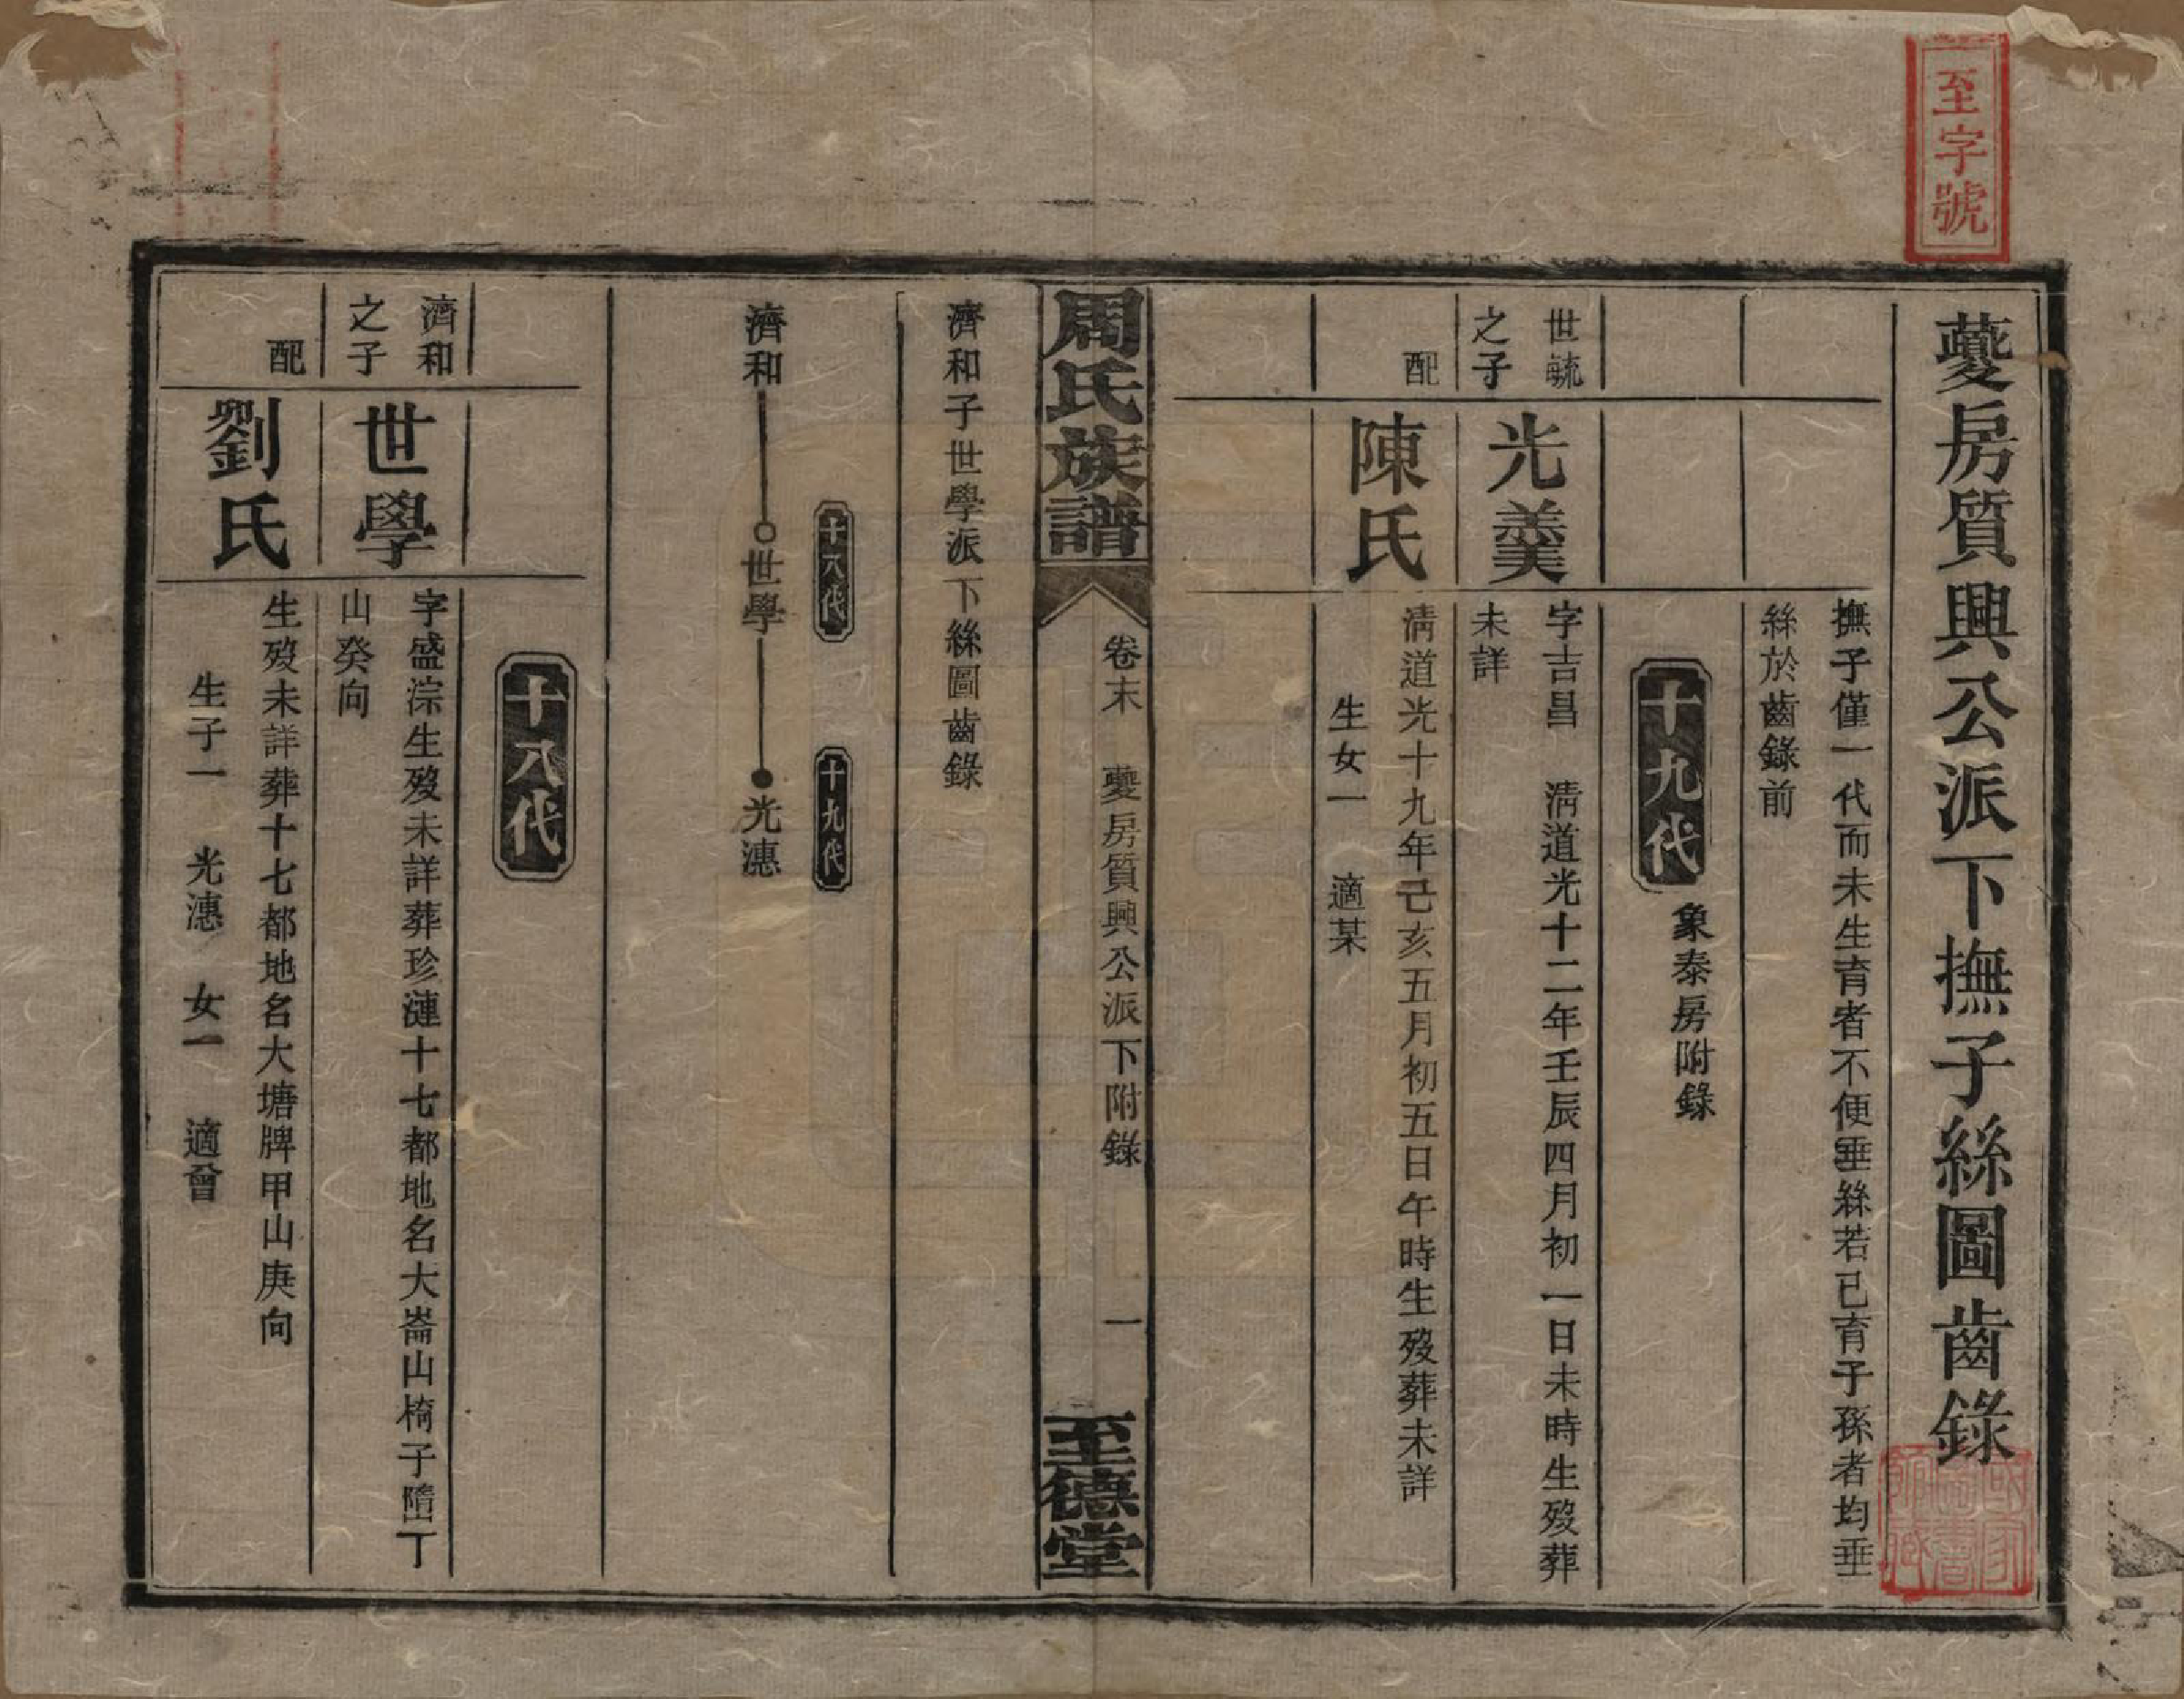 至字號
夔房質興公派下撫子絲圖齒錄
撫子僅一代而未生育者不便垂絲若已育子孫者均垂
絲於齒錄前
十九代
象泰房附錄
世毓
之子
光羮
字吉昌 淸道光十二年壬辰四月初一日未時生歿葬
未詳
配
陳氏
淸道光十九年己亥五月初五日午時生歿葬未詳
生女一 適某
周氏族譜
卷末 夔房質興公派下附錄
一
至德堂
濟和子世學派下絲圖齒錄
十八代
十九代
濟和
世學
光漶
十八代
濟和
之子
世學
字盛淙生歿未詳葬珍漣十七都地名大崙山椅子㙐丁
山癸向
配
劉氏
生歿未詳葬十七都地名大塘牌甲山庚向
生子一 光漶 女一 適曾